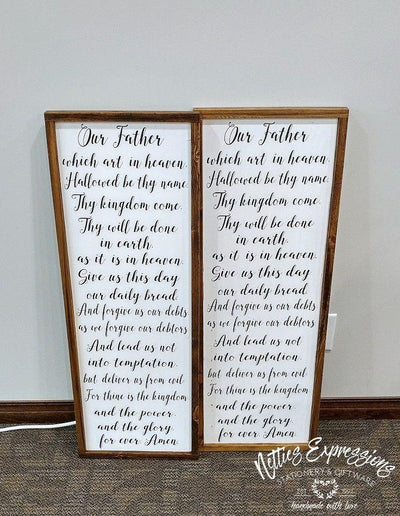 Our Father
which art in heaven.
Hallowed be thy name.
Thy kingdom come.
Thy will be done
in earth.
as it is in heaven.
Give us this day
our daily bread.
And forgive us our debts
as we forgive our debtors
And lead us not
into temptation.
but deliver us from evil
For thine is the kingdom
and the power.
and the glory.
for ever. Amen.
Our Father
which art in heaven.
Hallowed be thy name.
Thy kingdom come.
Thy will be done
in earth.
as it is in heaven.
Give us this day
our daily bread.
And forgive us our debts
as we forgive our debtors
And lead us not
into temptation.
but deliver us from evil
For thine is the kingdom
and the power.
and the glory.
for ever. Amen.
Netties Expressions
STATIONERY & GIFTWARE
handmade with love